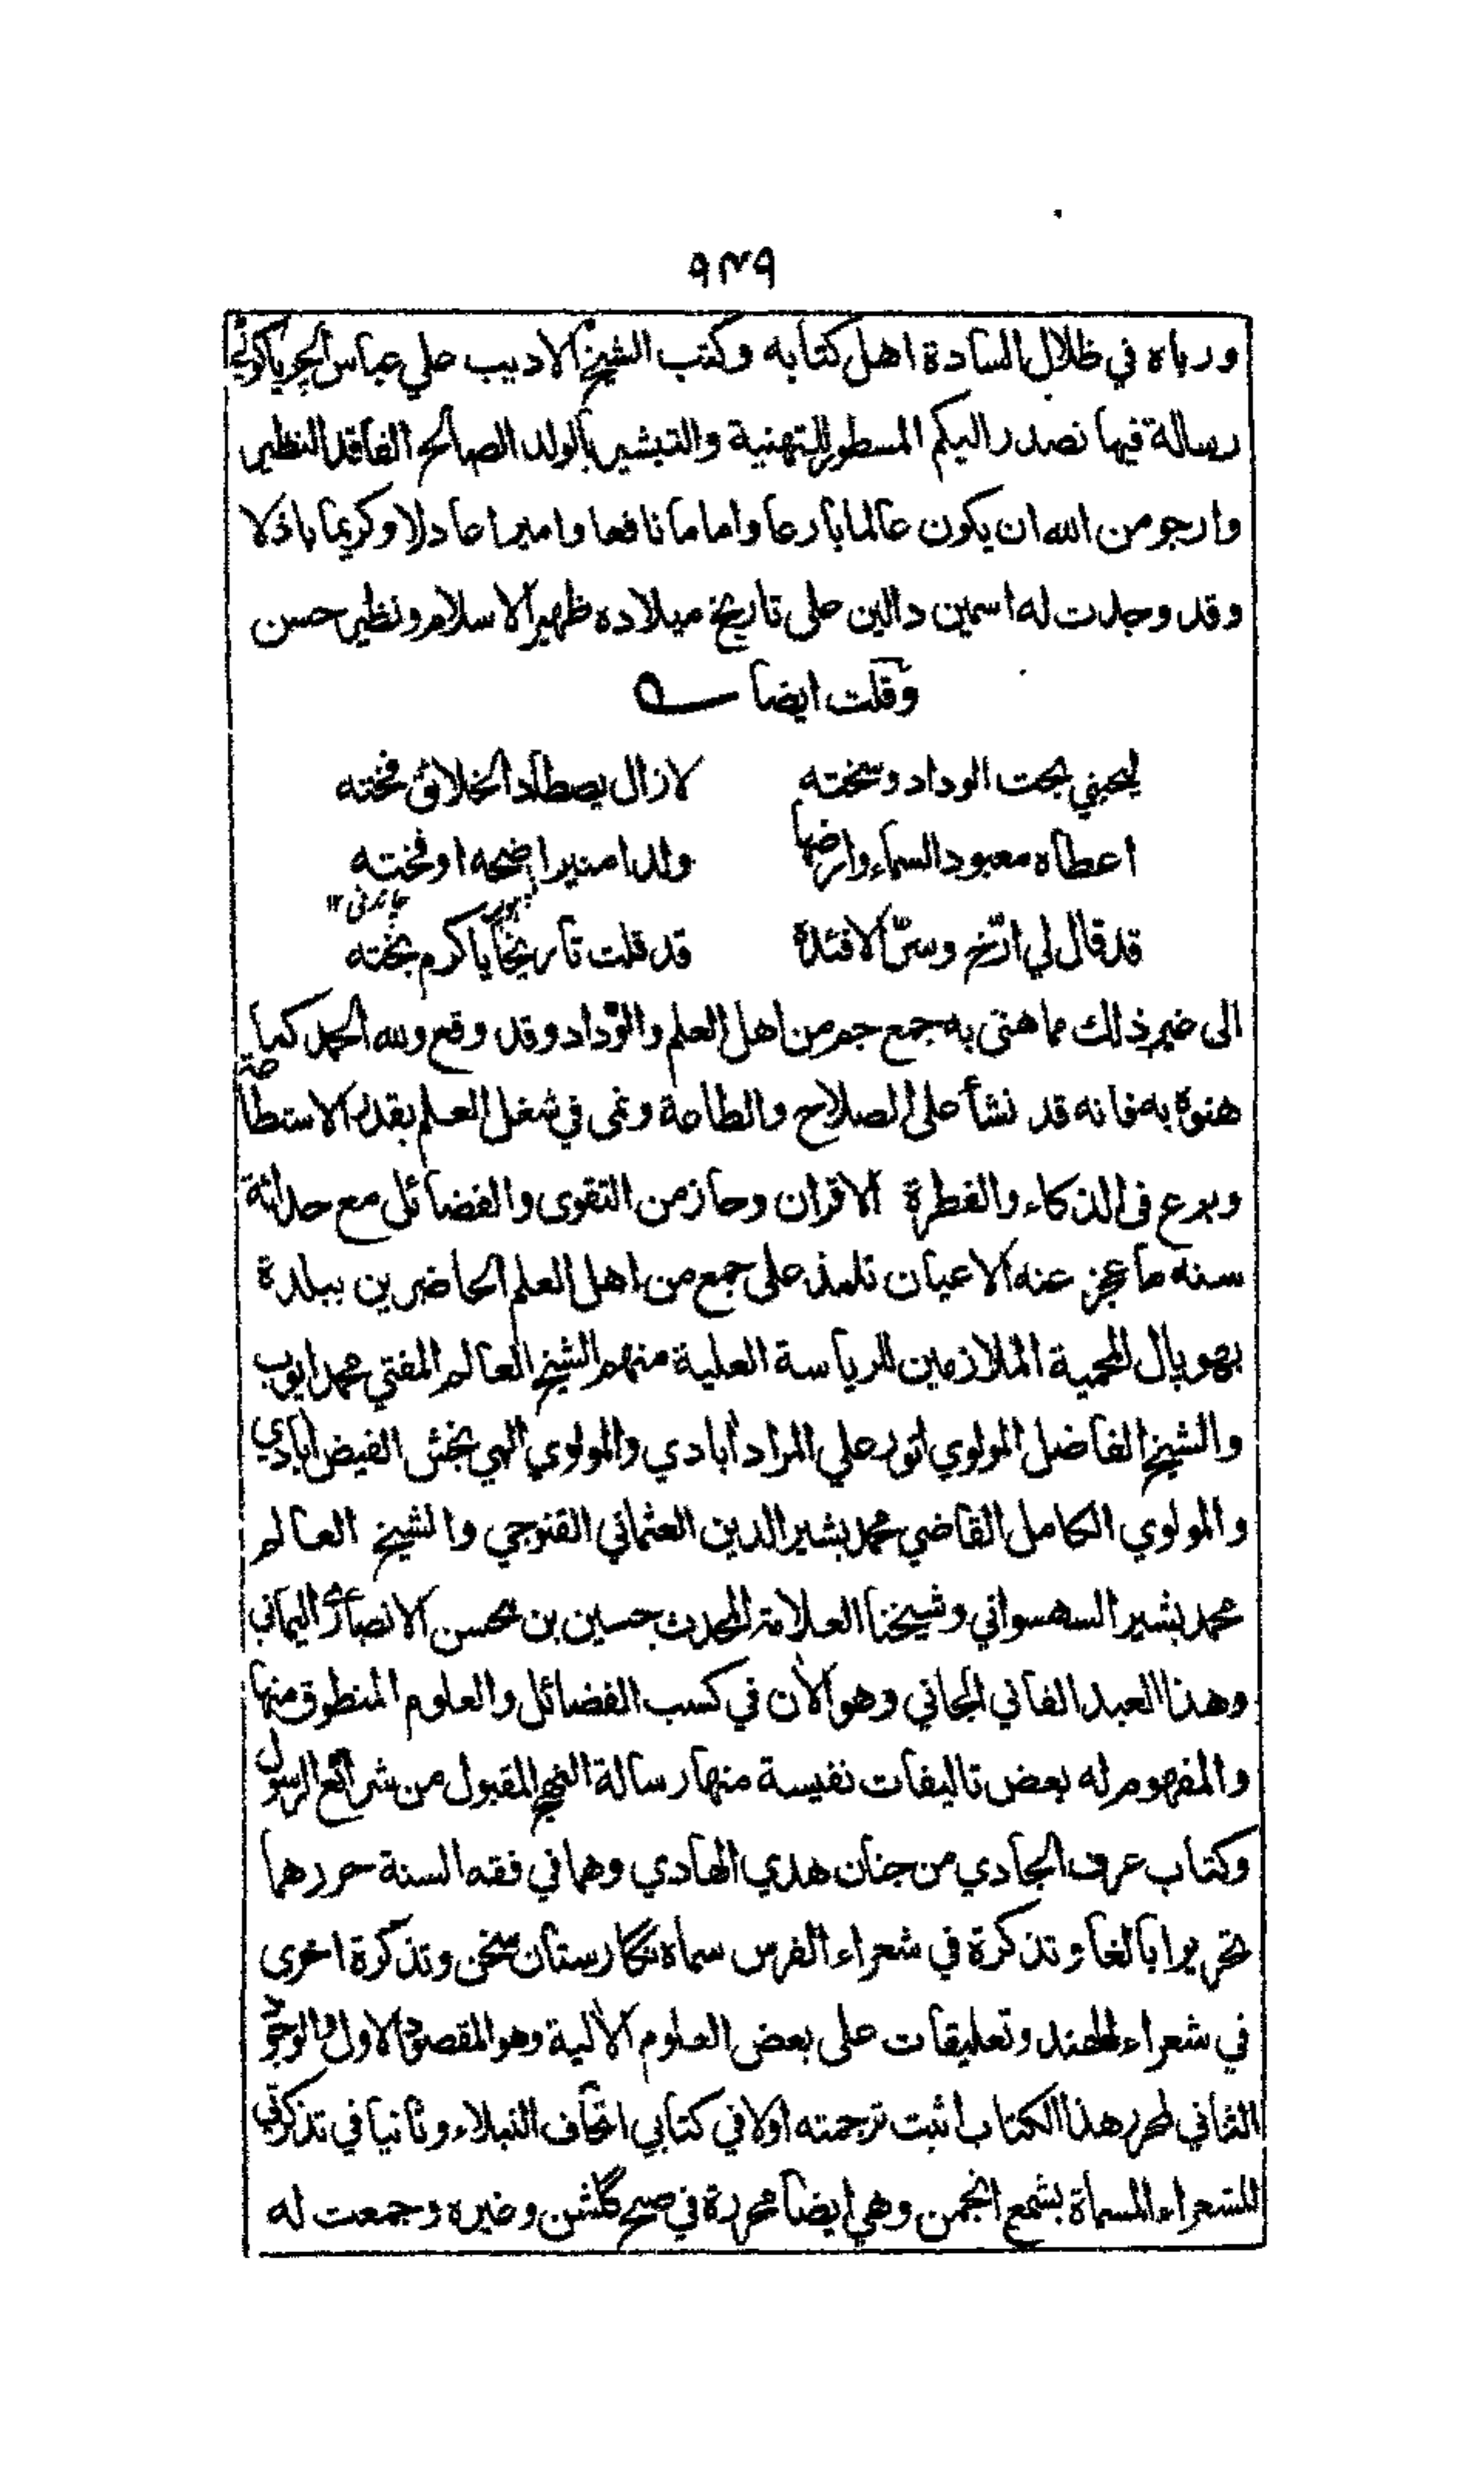 ٩٣٩
ورباه في ظلال السادة اهل كتابه وكتب الشيخ الاديب علي عباس الچرياكوٹي
رسالة فيها نصدر اليكم المسطور للتهنية والتبشير بالولد الصالح الفاقد النظير
وارجو من الله ان يكون عالما بارعا واماما نافعا واميرا عادلا وكريما باذلا
وقد وجدت له اسمين دالين على تاريخ ميلاده ظهير الاسلام ونظير حسن
وقلت ايضا
ليحيني بحت الوداد وسخته لازال يصطاد الخلائق فخته
اعطاه معبود السماء وارضها ولدا منيرا ضحه او فخته
چاندنى ١٢
قد قال لي ارّخ وسرّ الافئدة قد قلت تاريخا ياكرم بخته
الى غير ذلك مما هنى به جمع جم من اهل العلم والوداد وقد وقع ولله الحمد كما
هنوه به فانه قد نشأ على الصلاح والطاعة ونمى في شغل العلم بقدر الاستطاعة
وبرع في الذكاء والفطرة الاقران وحاز من التقوى والفضائل مع حداثة
سنه ما عجز عنه الاعيان تلمذ على جمع من اهل العلم الحاضرين ببلدة
بهوپال المحمية الملازمين للرياسة العلية منهم الشيخ العالم المفتي محمد ايوب
والشيخ الفاضل المولوي انور علي المراد أبادي والمولوي الهي بخش الفيض أبادي
والمولوي الكامل القاضي محمد بشير الدين العثماني القنوجي والشيخ العالم
محمد بشير السهسواني وشيخنا العلامة المحدث حسين بن محسن الانصاري اليماني
وهذا العبد الفاني الجاني وهو الأن في كسب الفضائل والعلوم المنطوق منها
والمفهوم له بعض تاليفات نفيسة منها رسالة النهج المقبول من شرائع الرسول
وكتاب عرف الجادي من جنان هدي الهادي وهما في فقه السنة حررهما
تحريرا بالغا وتذكرة في شعراء الفرس سماه نگارستان سخن وتذكرة اخرى
في شعراء الهند وتعليقات على بعض العلوم الألية وهو المقصود الاول والوجود
الثاني لمحرر هذا الكتاب اثبت ترجمته اولا في كتابي اتحاف النبلاء وثانيا في تذكرتي
للشعراء المسماة بشمع انجمن وهي ايضا محررة في صبح گلشن وغيره وجمعت له